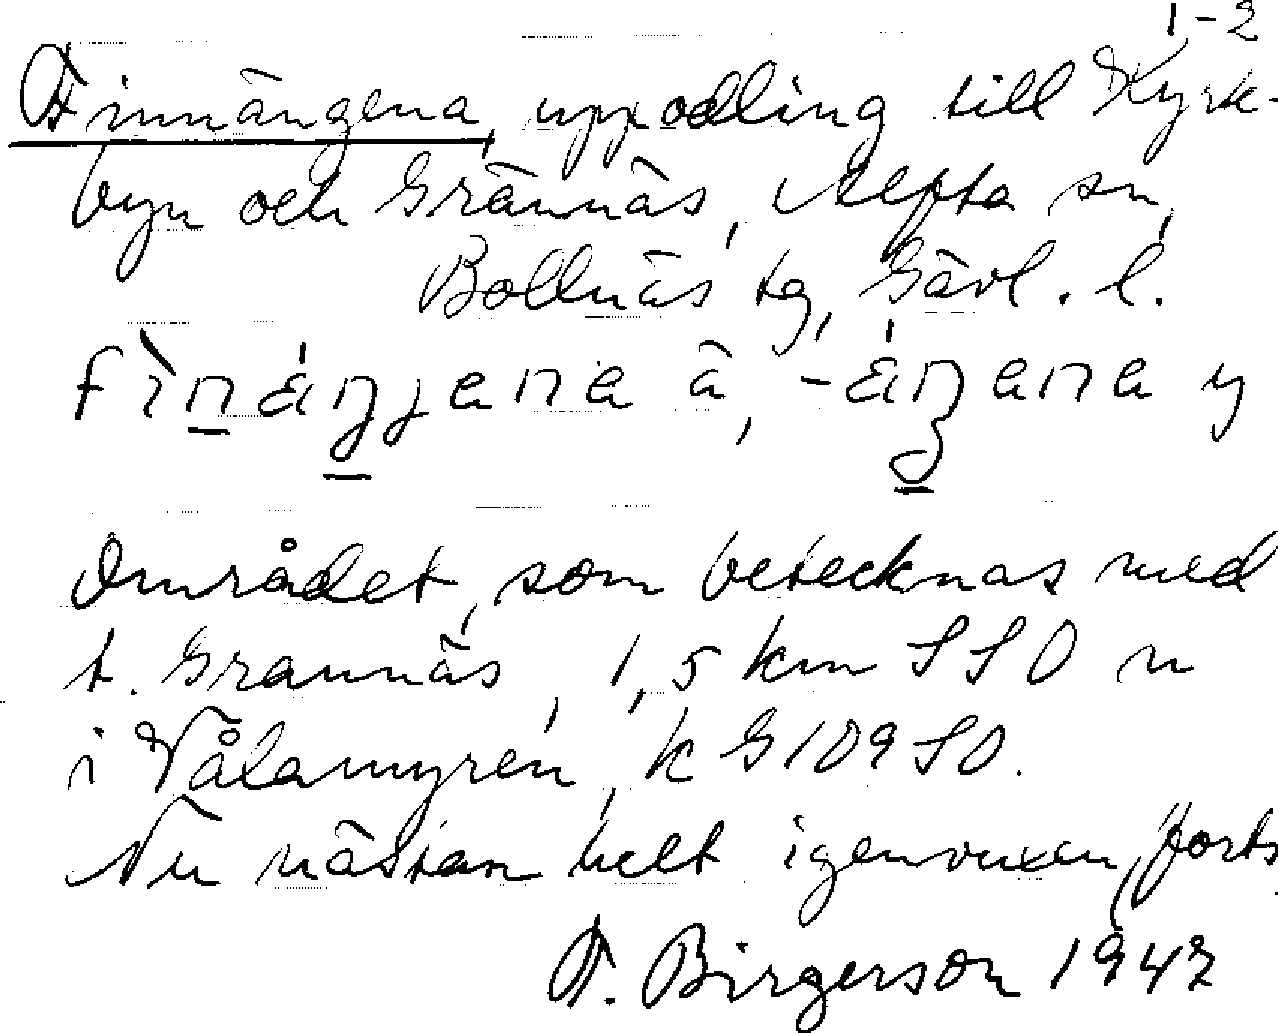 1-2
Finnängena, uppodling till Kyrk-
byn och Grännäs, Alfta sn,
Bollnäs tg, Gävl. l.
Området, som betecknas med
t. Grannäs, 1,5 km SSO n
i Vålamyren, k G109SO.
Nu nästan helt igenvuxen, forts
F. Birgerson 1947